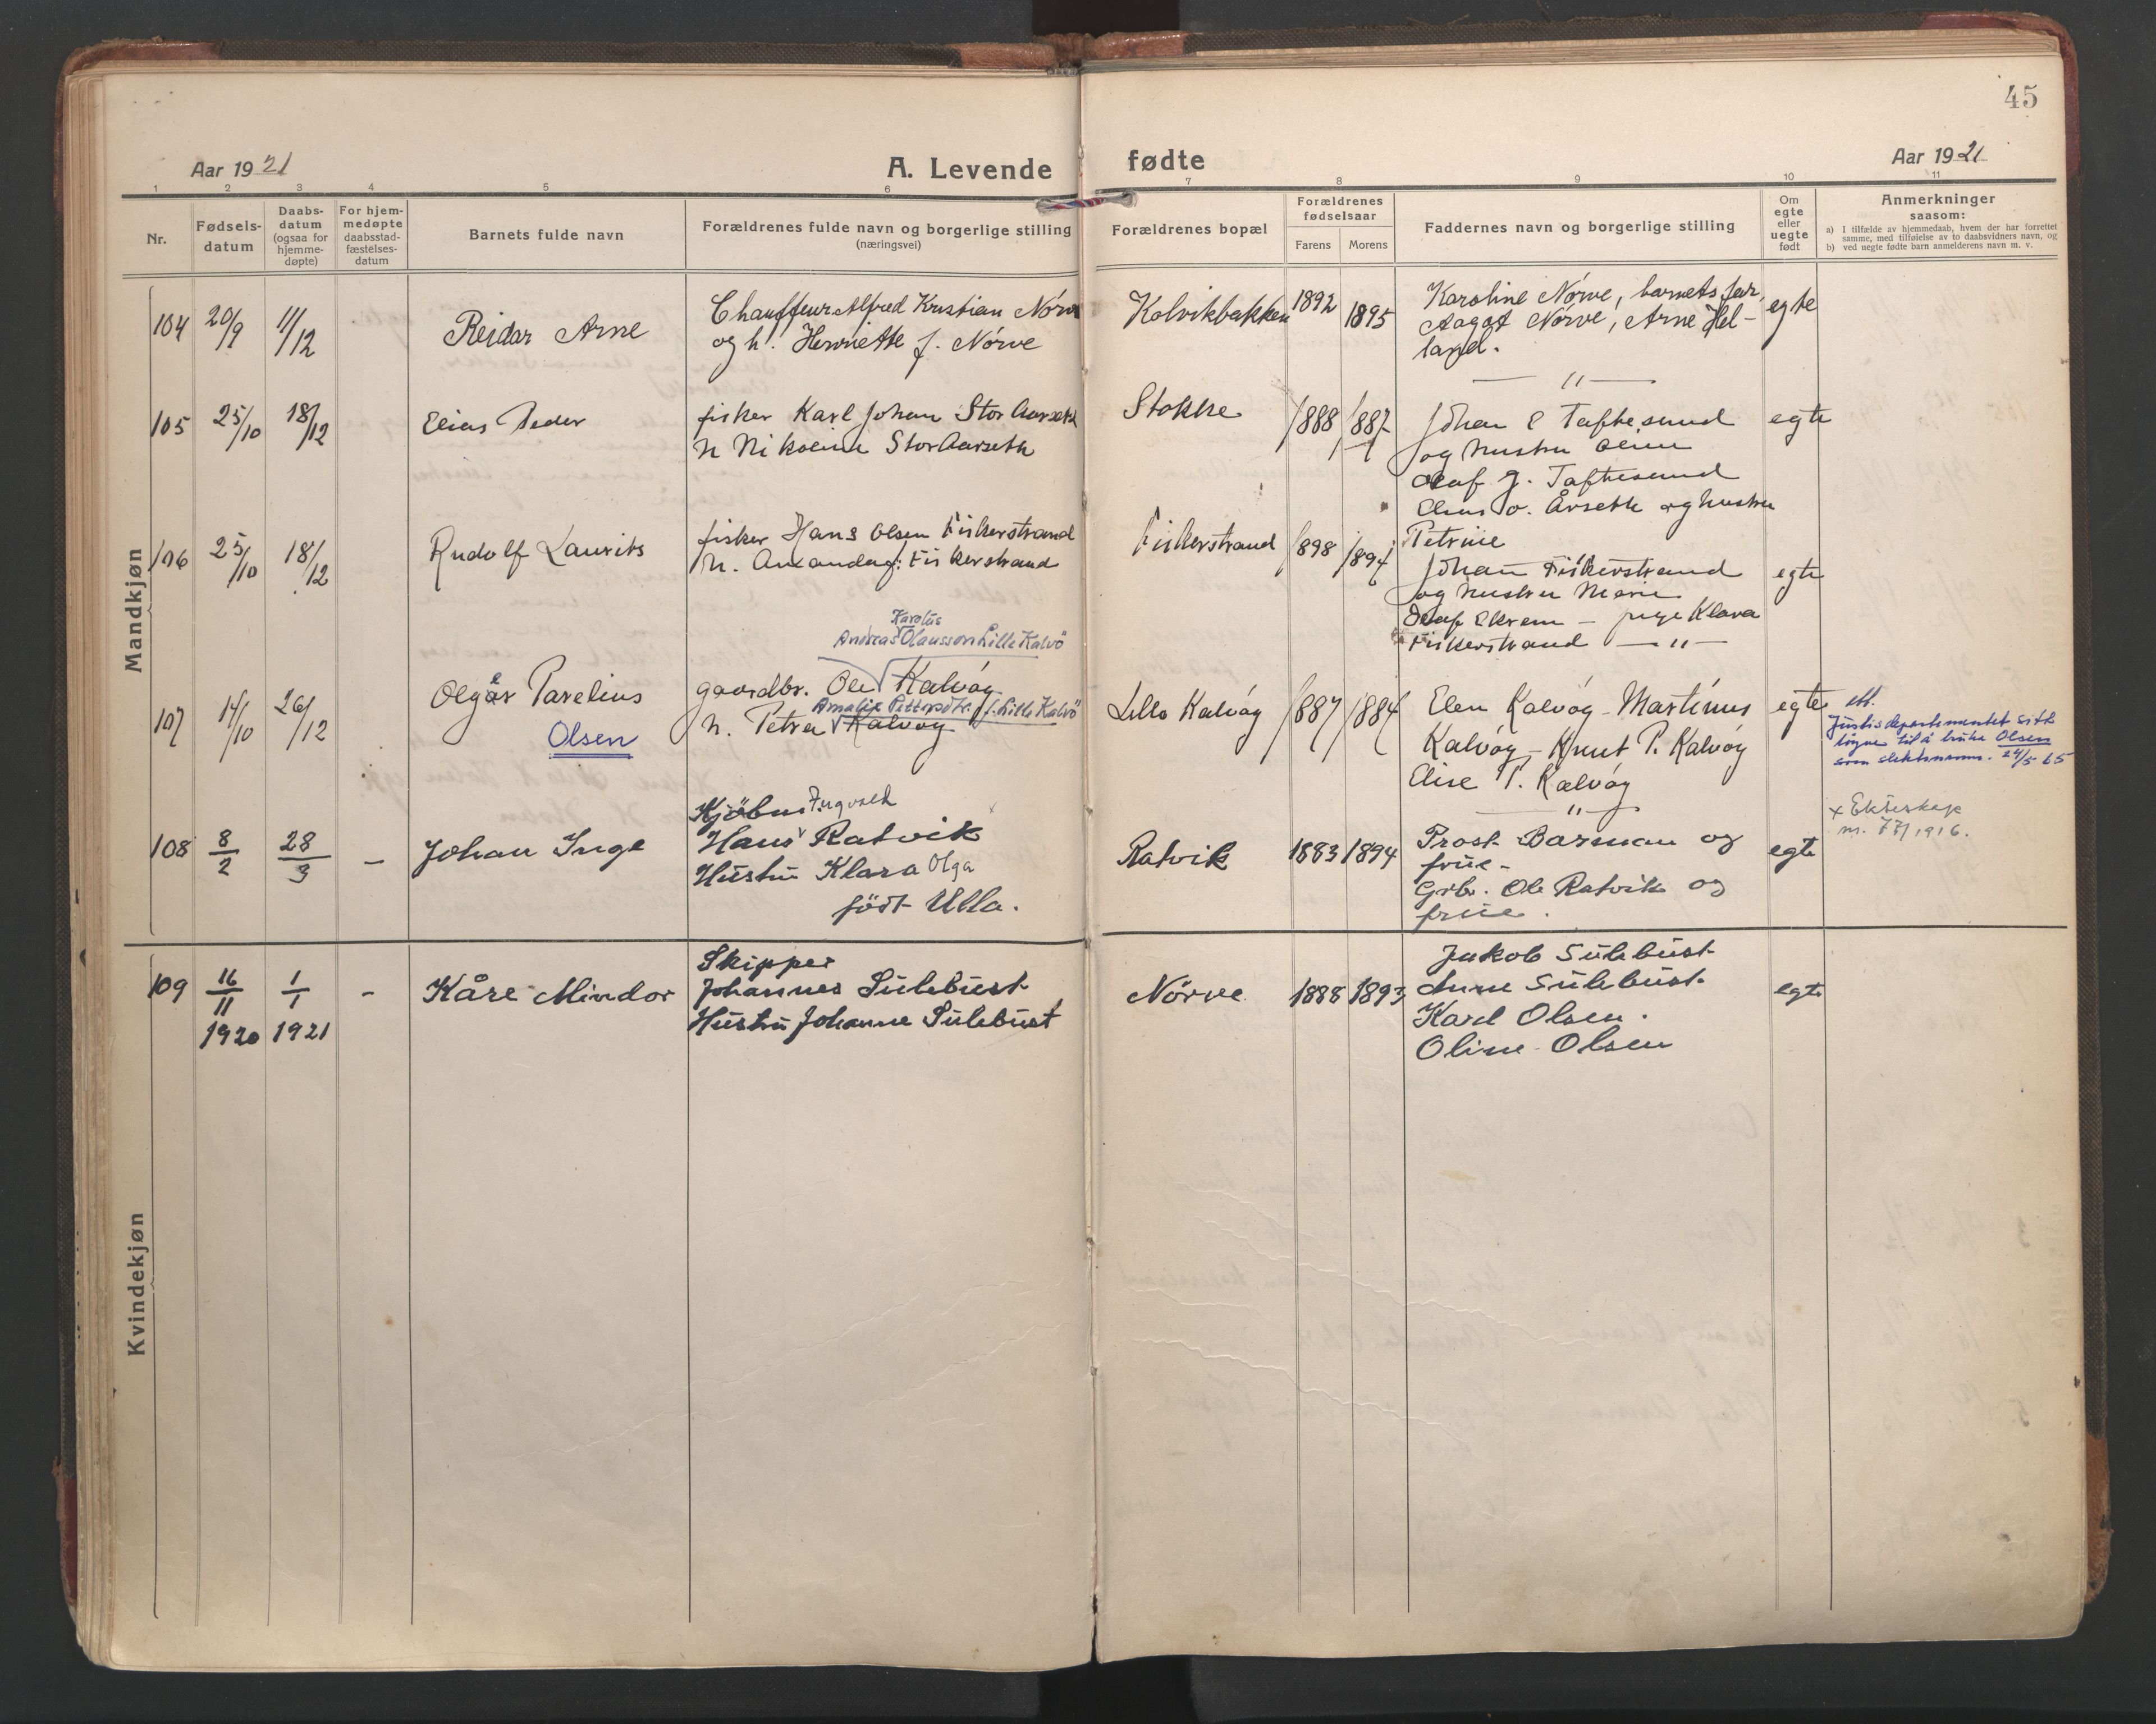 45
Aar 1921
A. Levende fødte
Aar 1921
1 2 3 4 5 6 7 8 9 10 11
Nr.
Fødsels-
datum
Daabs-
datum
(ogsaa for
hjemme-
døpte)
For hjem-
medøpte
daabsstad-
fæstelses-
datum
Barnets fulde navn
Forældrenes fulde navn og borgerlige stilling
(næringsvei)
Forældrenes bopæl
Forældrenes
fødselsaar
Farens Morens
Faddernes navn og borgerlige stilling
Om
egte
eller
uegte
født
Anmerkninger
saasom:
a) I tilfælde av hjemmedaab, hvem der har forrettet
samme, med tilføielse av to daabsvidners navn, og
b) ved uegte fødte barn anmelderens navn m. v.
Mandkjøn
104 20/9 11/12 Reidar Arne
Chauffeur Alfred Kristian Nörve
og h. Henriette f. Nörve
Kolvikbakken 1892 1895
Karoline Nörve, barnets far,
Aagot Nörve, Arne Hel-
land.
egte
105 25/10 18/12 Elias Peder
fisker Karl Johan Stor Aarseth
h Nikoline Stor Aarseth
Stokke 1888 1887
— " —
Johan E Taftesund
og hustru Oline
Olaf J. Taftesund
Elias O. Årseth og hustru
Petrine
egte
106 25/10 18/12 Rudolf Laurits
fisker Hans Olsen Fiskerstrand
h. Amanda f. Fiskerstrand
Fiskerstrand 1898 1894
Johan Fiskerstrand
og hustru Marie
Olaf Ekrem — pige Klara
Fiskerstrand — " —
egte
107 14/10 26/12 Olgar Parelius
Olsen
Karolus
Andreas Olausson Lille Kalvö
gaardbr. Ole Kalvög
Amalie Pettersdtr. f. Lille Kalvö
h. Petra Kalvög
Lille Kalvög 1887 1884
Elen Kalvög - Martinus
Kalvög - Knut P. Kalvög
Elise P. Kalvög
— " —
egte
Justisdepartementet sitt
löyve til å bruke Olsen
som slektsnamn. 24/5 65
108 8/2 28/3 — Johan Inge
Kjöbm. Ingvald
Hans Ratvik
Hustru Klara Olga
född Ulla.
Ratvik 1883 1894
Prost Barman og
frue -
Grbr. Ole Ratvik og
frue.
egte
x Ekteskap
nr. 77/1916.
Kvindekjøn
109 16/11 1/1 - Kåre Mindor
1920 1921
Skipper
Johannes Sulebust
Hustru Johanne Sulebust
Nörve 1888 1893
Jakob Sulebust
Anne Sulebust.
Karl Olsen.
Oline Olsen
egte